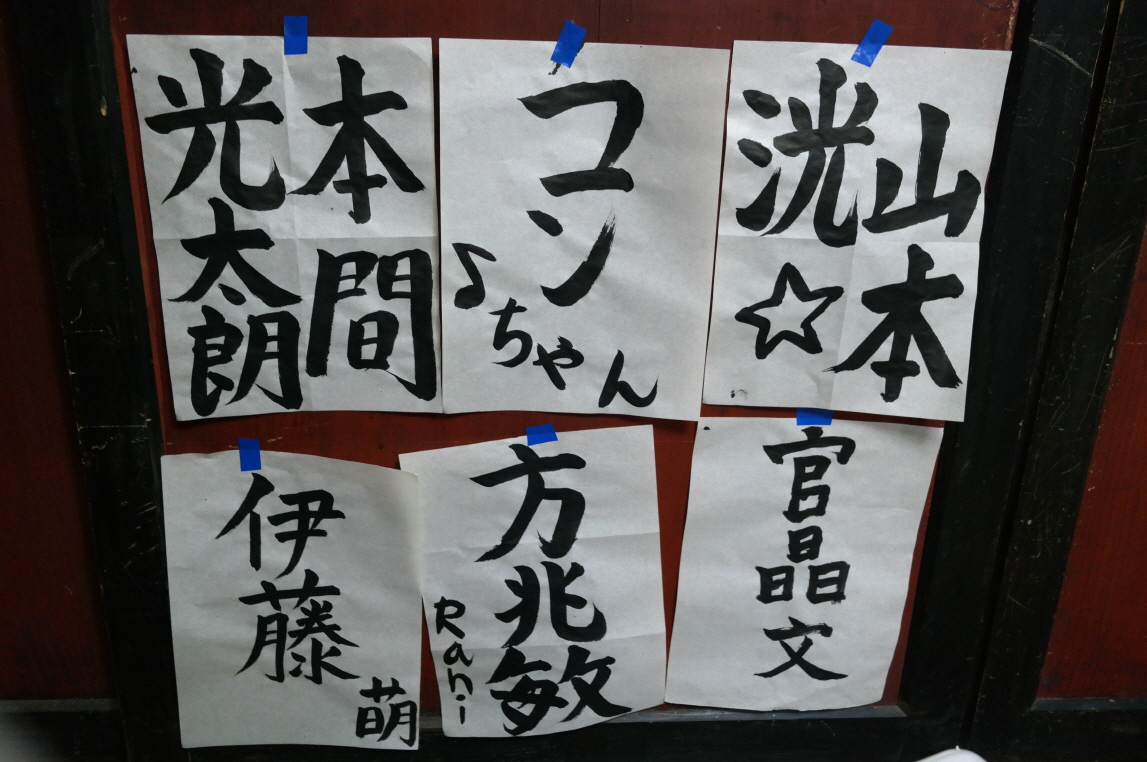 本間
光太朗
コン
ちゃん♪
山本
洸☆
伊藤
萌
方兆敏
Rani
官晶文